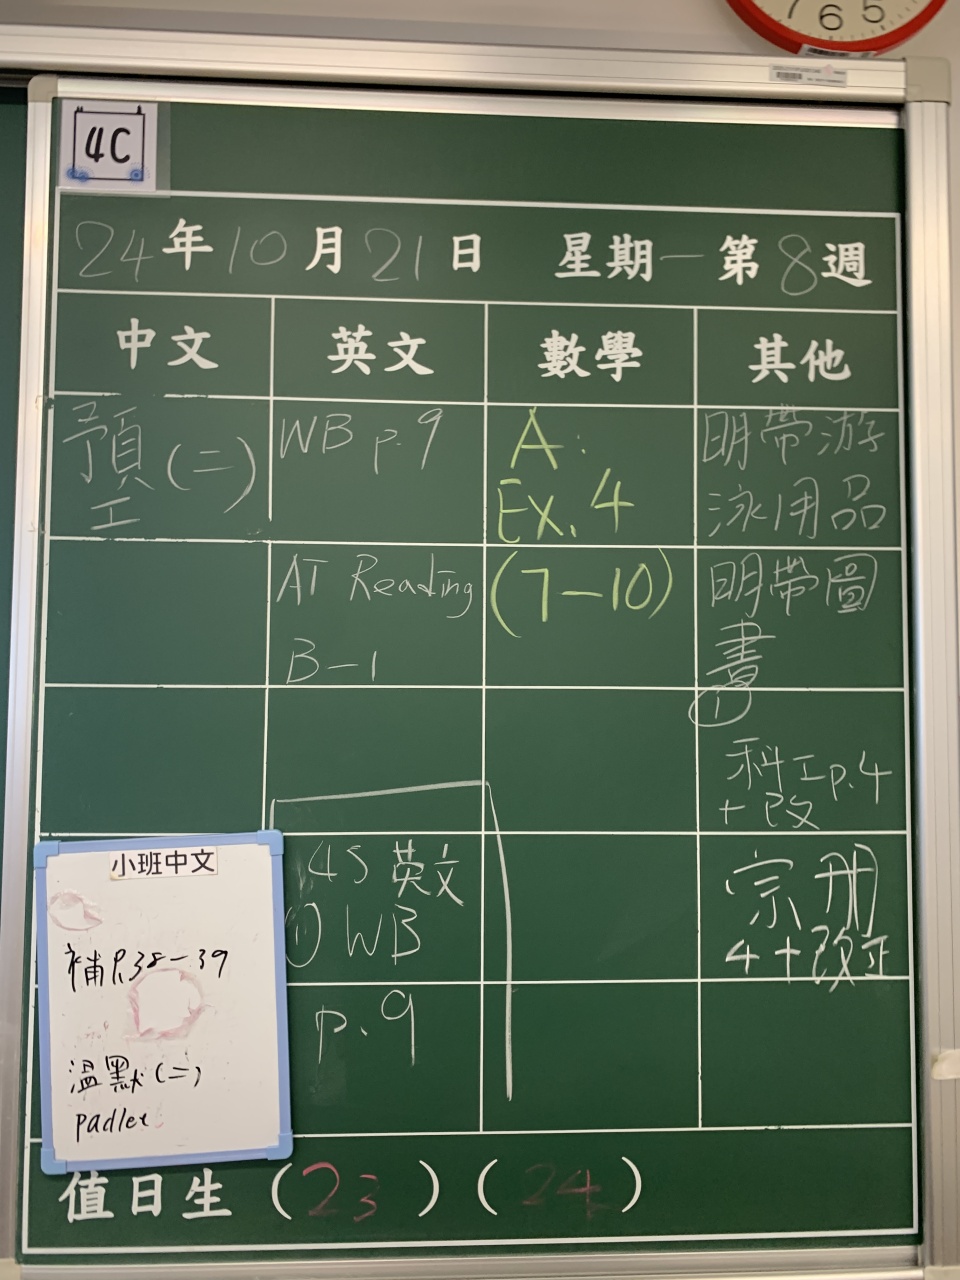 7 6 5
4C
24年10月21日 星期一第8週
中文 英文 數學 其他
預(二)
工
WB p.9
AT Reading
B-1
45 英文
① WB
p.9
A:
Ex. 4
(7-10)
明帶游
泳用品
明帶圖
書
①
科工p.4
+改
宗冊
4+改正
小班中文
補P.38-39
溫默(二)
padlet
值日生 (23) (24)